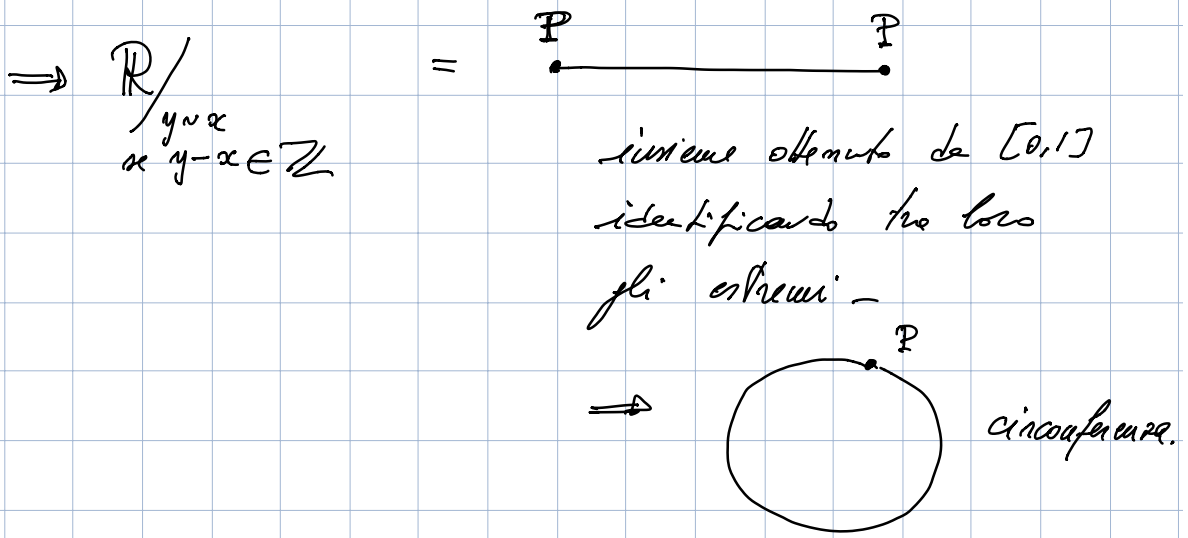 P P
⟹ ℝ/ =
y∼x
se y−x∈ℤ insieme ottenuto da [0,1]
identificando tra loro
gli estremi –
P
⟹ circonferenza.